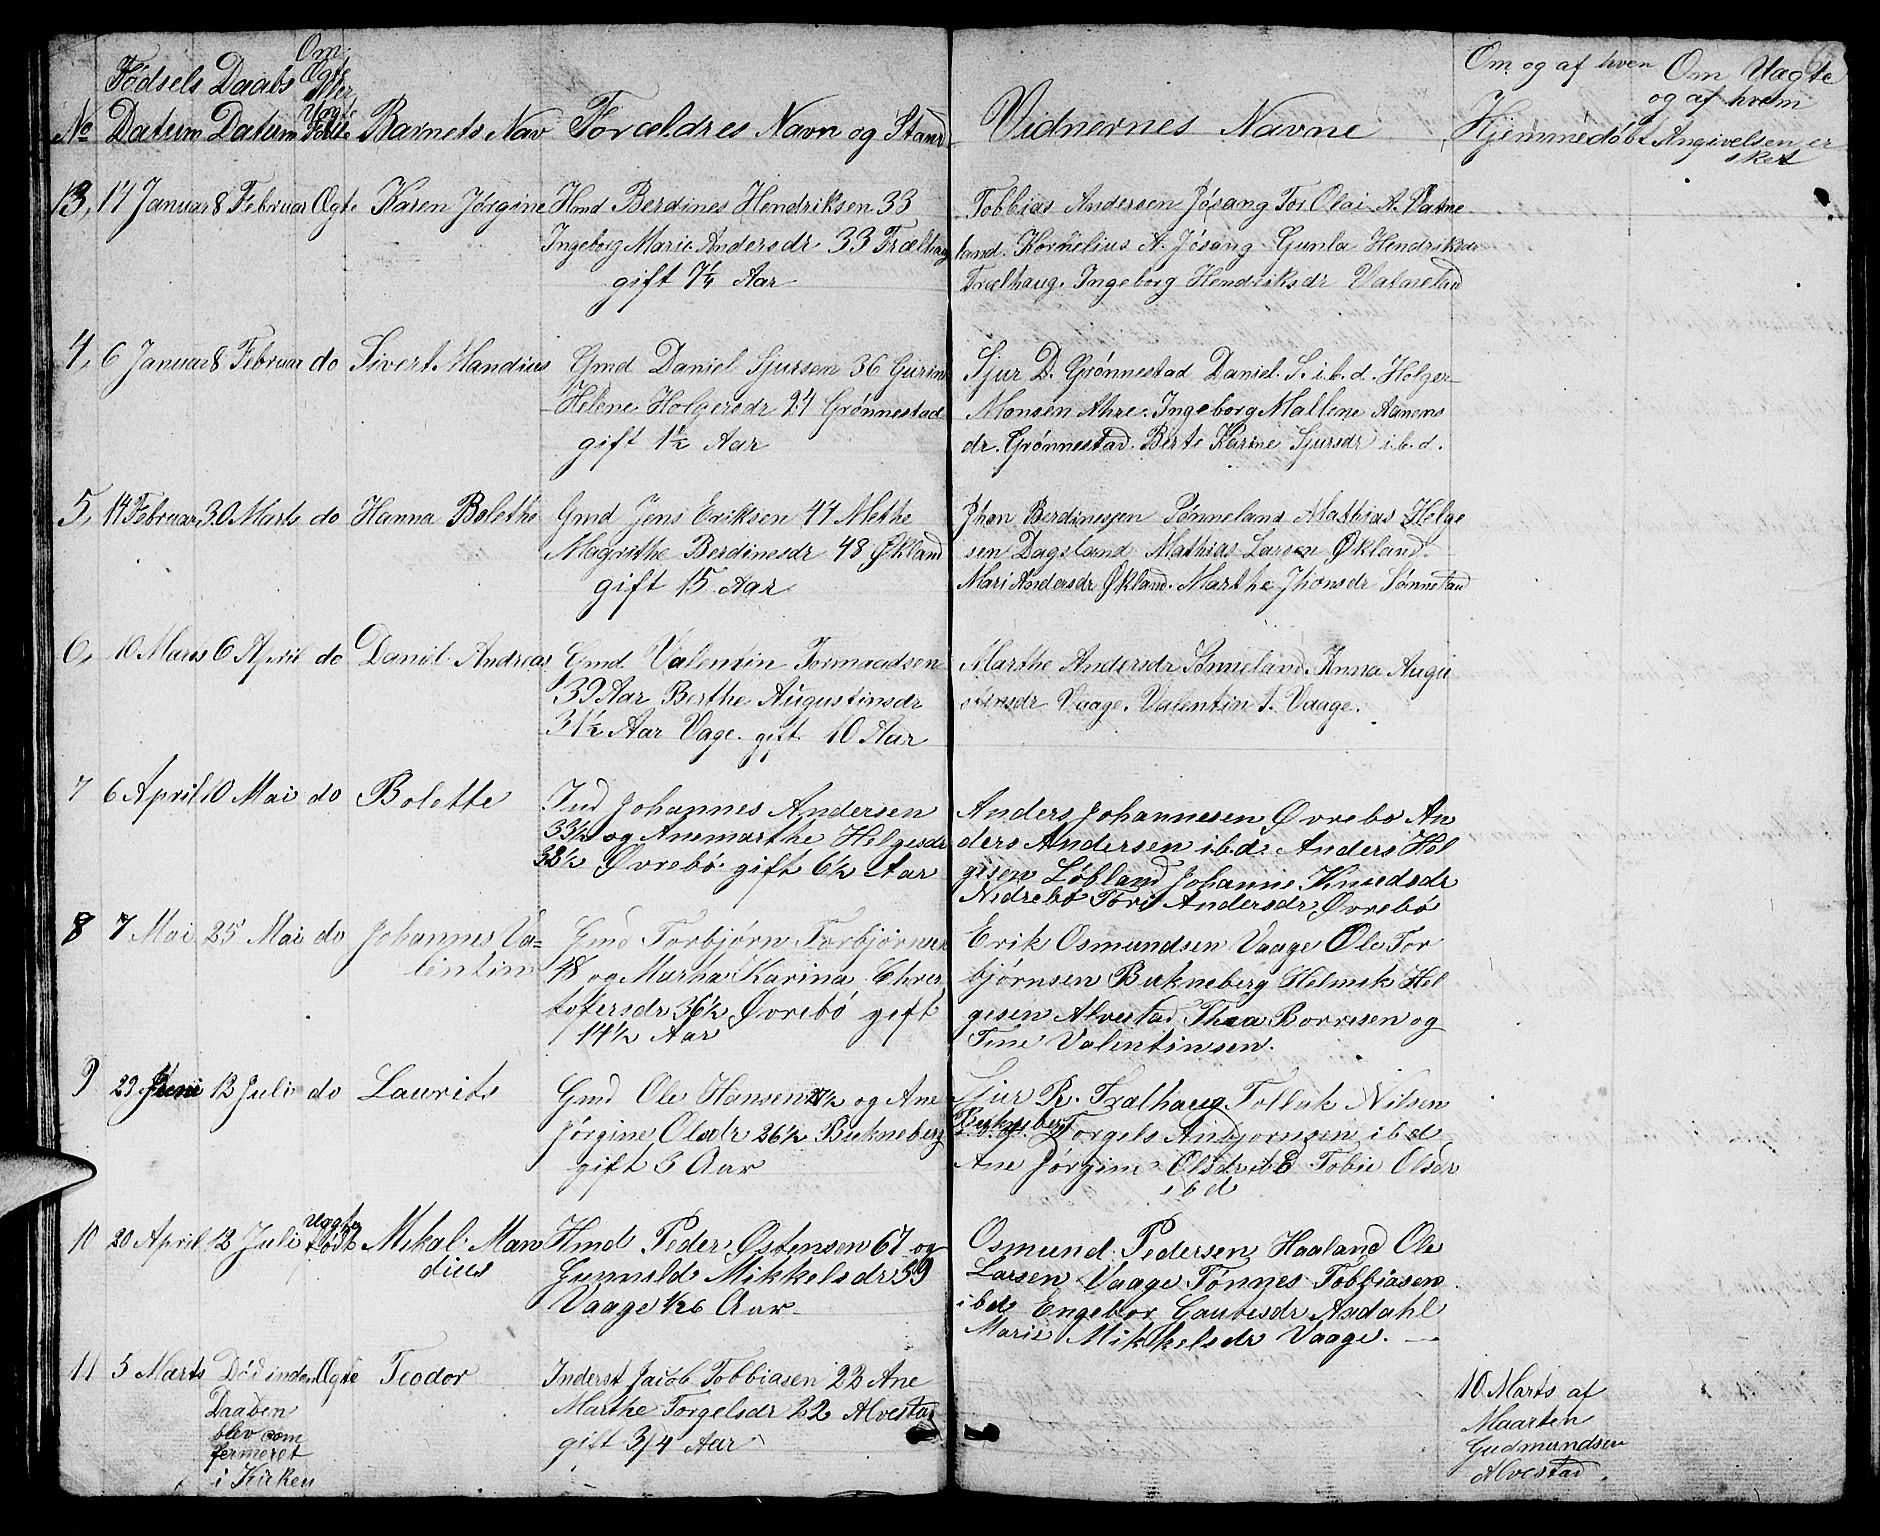 No Fødsels Datum Daabs Datum Om Ægte eller Uægte Fødte Barnets Nav Forældres Navn og Stand Vidnernes Navne Om og af hvem Hjemmedøbt Om Uægte og af hvem Angivelsen er sket
13, 17 Januar 8 Februar Ægte Karen Jørgine Hmd Berdines Hendriksen 33
Ingeborg Marie Andersdr 33 Trælhaug
gift 7¼ Aar
Tobbias Andersen Jøsang Tor Olai A. Vatne
land. Kornelius A. Jøsang Gunla Hendriksdr
Trælhaug. Ingeborg Hendriksdr Valneland
4, 6 Januar 8 Februar do Sivert Mandius Gmd Daniel Sjursen 36 Gurine
Helene Holgersdr 24 Grønnestad
gift 1½ Aar
Sjur D. Grønnestad Daniel. S. i.b.d. Holger
Monsen Ahre. Ingeborg Mallene Aanens
dr. Grønnestad. Berte Karine Sjursdr i.b.d.
5, 14 Februar 30 Marts do Hanna Bolethe Gmd Jens Eriksen 44 Methe
Magrithe Berdinesdr 48 Økland
gift 15 Aar
Jhon Berdinessen Sønneland Mathias Helge
sen Dagsland Mathias Larsen Økland.
Mari Andersdr Økland. Marthe Jhonsdr Sønneland
6, 10 Marts 6 April do Daniel Andreas Gmd Valentin Tormaadsen
39 Aar Berthe Augustinsdr
31½ Aar Vage. gift 10 Aar
Marthe Andersdr Sønneland. Anna Augu
stinsdr Vaage. Valentin T. Vaage.
7 6 April 10 Mai do Bolette Ind Johannes Andersen
33½ og Anemarthe Helgesdr
32½ Øvrebø gift 6½ Aar
Anders Johannesen Øvrebø An
ders Andersen i.b.d. Anders Hel
gesen Løbland Johanne Knudsdr
Nedrebø Tori Andersdr Øvrebø
8 7 Mai 25 Mai do Johannes Va=
lentin
Gmd Torbjørn Torbjørnsen
48 og Martha Karina Chris
tofersdr 36½ Øvrebø gift
14½ Aar
Erik Osmundsen Vaage Ole Tor
bjørnsen Bukneberg Helmek Hel
gesen Alvestad Thea Borresen og
Tine Valentinsen.
9 29 Juni 13 Juli do Laurits Gmd Ole Hansen 27½ og Ane
Jørgine Olsdr 26½ Bukneberg
gift 3 Aar
Sjur R. Trælhaug Tollak Nilsen
Bukneberg Torgels Anbjornsen i b d
Ane Jørgine Olsdr i b d Tobie Olsdr
i b d
10 20 April 13 Juli Uægte født Mikal Man
dius
Hmd Peder Østensen 67 og
Gunnild Mikkelsdr 39
Vaage ½6 Aar
Osmund Pedersen Haaland Ole
Larsen Vaage Tønnes Tobbiasen
i b d Engebor Gautesdr Aadahl
Marie Mikkelsdr Vaage.
11 5 Marts Død inden
Daaben
blev com
fermeret
i Kirken
Ægte Teodor Inderst Jacob Tobbiasen 23 Ane
Marthe Torgelsdr 22 Alvestad
gift 3/4 Aar
10 Marts af
Maarten
Gudmundsen
Alvestad.